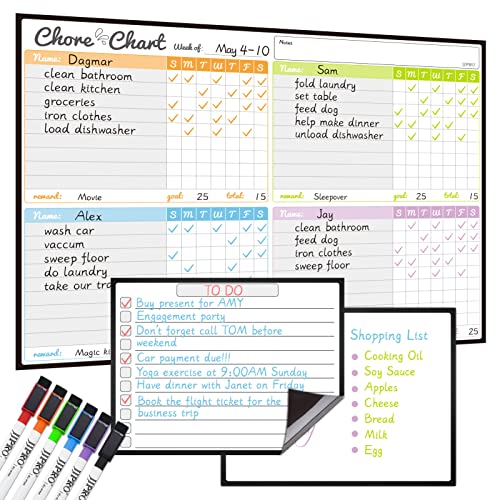 Chore Chart
Week of: May 4-10
Notes
JJPRO
Name: Dagmar
S M T W T F S
clean bathroom
clean kitchen
groceries
iron clothes
load dishwasher
reward: Movie goal: 25 total: 15
Name: Sam
S M T W T F S
fold laundry
set table
feed dog
help make dinner
unload dishwasher
reward: Sleepover goal: 25 total: 15
Name: Alex
S M T W T F S
wash car
vaccum
sweep floor
do laundry
take our tra
reward: Magic k
Name: Jay
S M T W T F S
clean bathroom
feed dog
iron clothes
sweep floor
TO DO
Buy present for AMY
Engagement party
Don't forget call TOM before
weekend
Car payment due!!!
Yoga exercise at 9:00AM Sunday
Have dinner with Janet on Friday
Book the flight ticket for the
business trip
Shopping List
Cooking Oil
Soy Sauce
Apples
Cheese
Bread
Milk
Egg
JJPRO
JJPRO
JJPRO
JJPRO
JJPRO
JJPRO